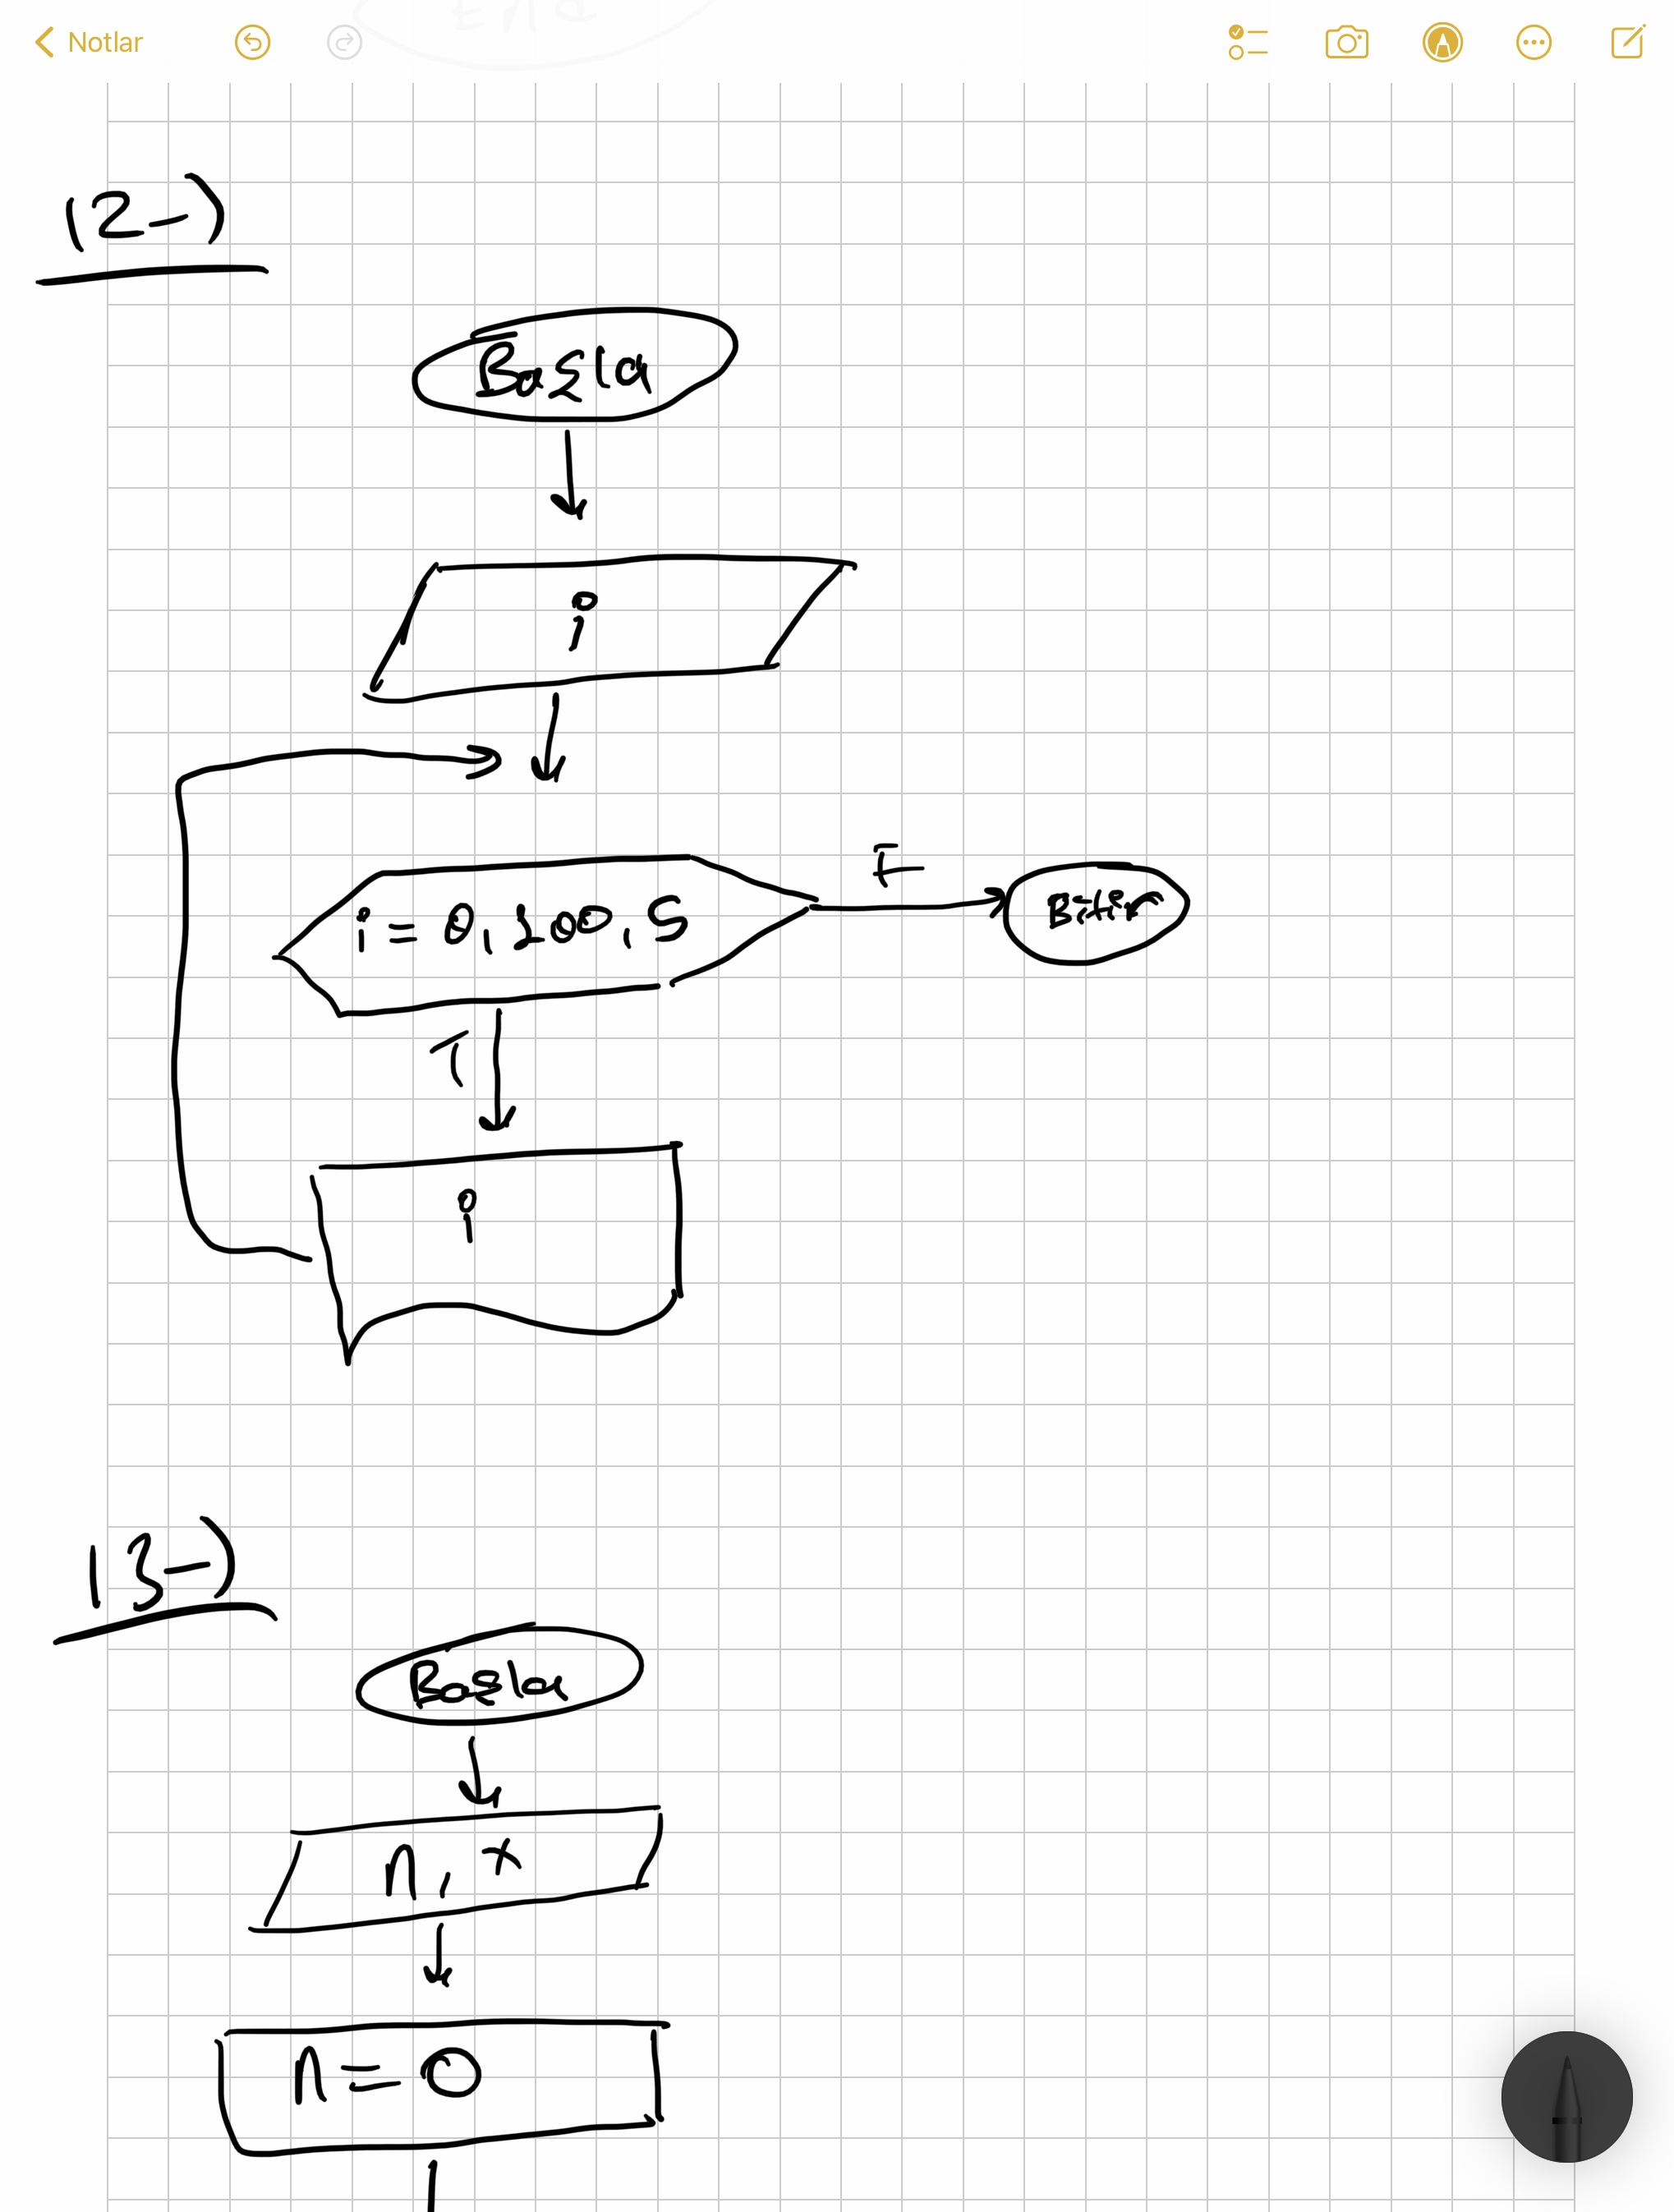 End
Notlar
12-)
Başla
i
i = 0, 100, 5
F
Bitir
T
i
13-)
Başla
n, x
n = 0